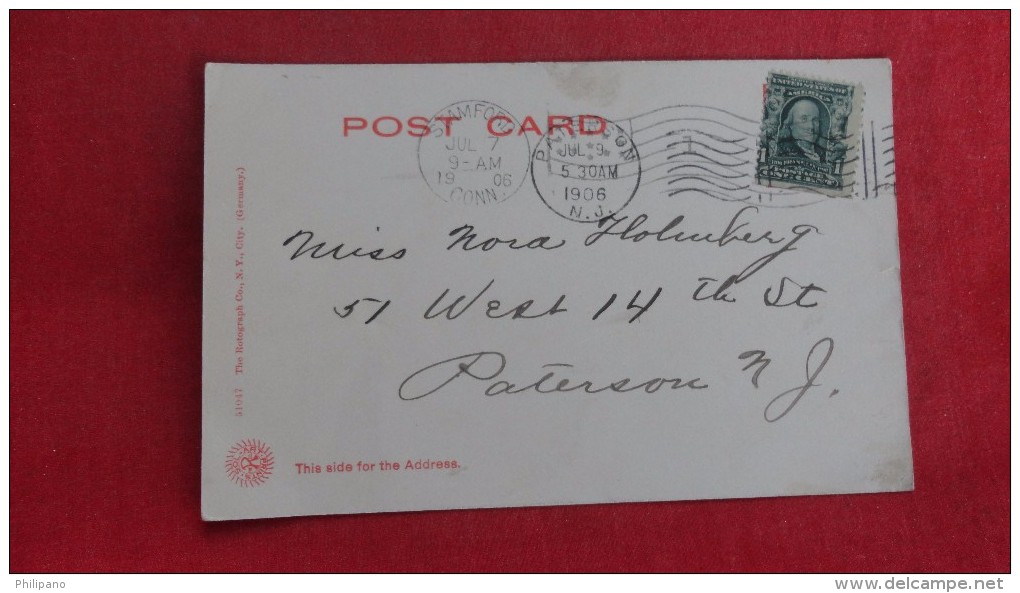 POST CARD
STAMFORD
JUL 7
9-AM
19 06
CONN.
PATERSON
JUL 9
5 30AM
1906
N.J.
UNITED STATES OF
AMERICA
1 1
POSTAGE
ONE CENT
Miss Nora Holmberg
51 West 14th St
Paterson N J.
51047 The Rotograph Co., N. Y., City. (Germany.)
This side for the Address.
Philipano
www.delcampe.net